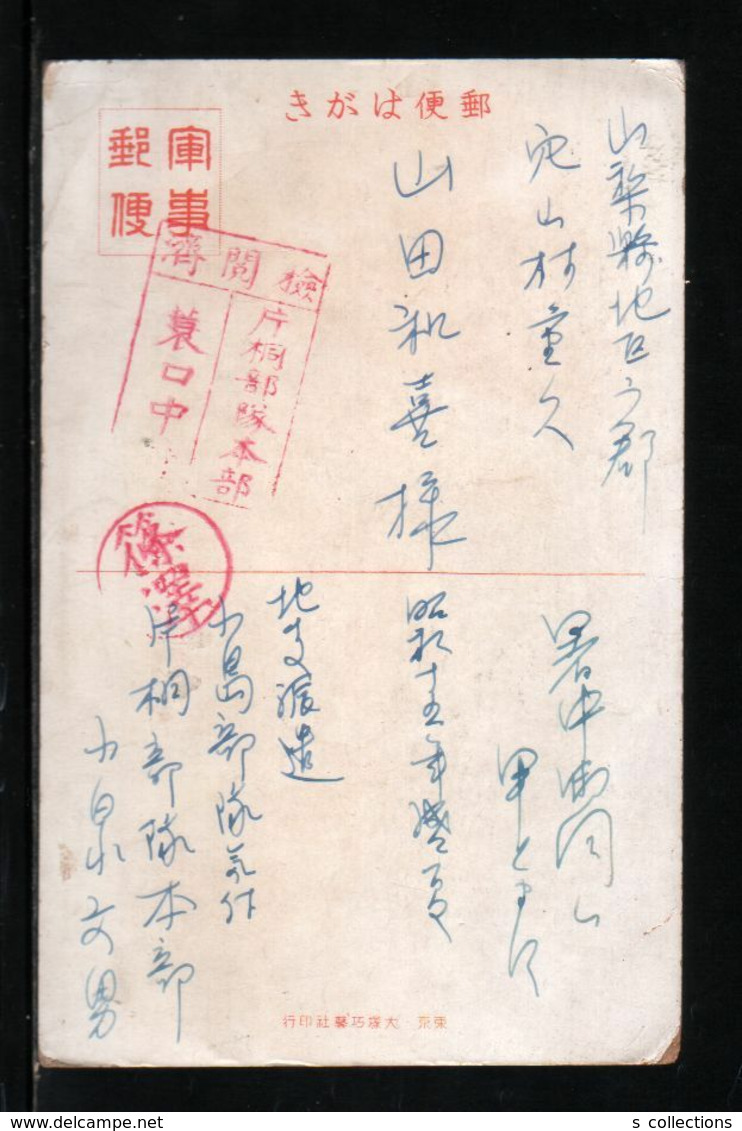 郵便はがき
軍事
郵便
検閲済
片桐部隊本部
蓑口中
篠澤
山梨縣北巨ヶ郡
穴山村重久
山田和喜様
暑中御伺い
申上ます
昭和十五年盛夏
北支派遣
小島部隊気付
片桐部隊本部
小泉文男
東京 大塚巧藝社印行
s collections